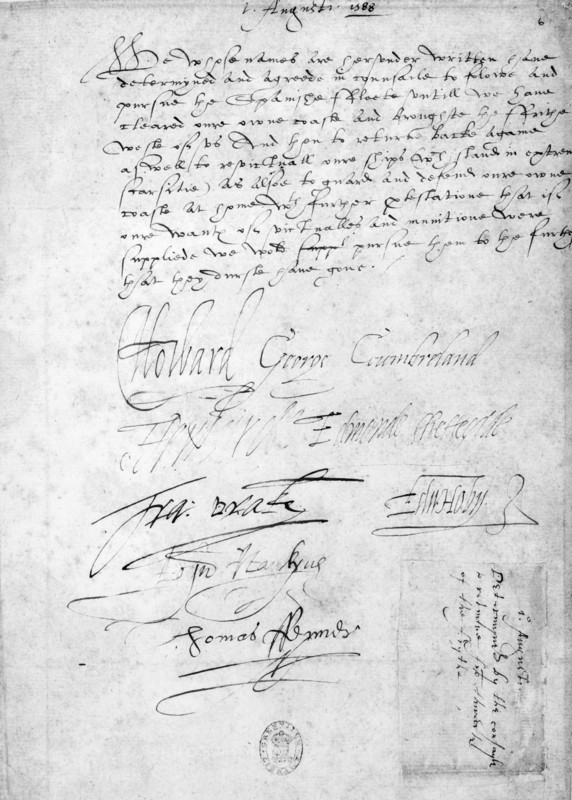 1. Augusti. 1588
6
We whose names are hereunder written have
determyned and agreede in counsaile to folowe and
pursue the Spanishe Fleete untill we have
cleared oure owne coaste and broughte the Frithe
weste of us And then to returne backe againe
aswell to revictuall oure ships wch stand in extreme
scarsitie) As alsoe to guard and defend oure owne
coaste at home wth further protestatione that if
oure wants of victualles and munitione were
suppliede we wold suppl pursue them to the furthest
that they durste have gone.
C Howard George Cumbreland
T Howarde Edmonde Sheffeylde
Fra: Drake Edw Hoby
John Hawkyns
Thomas Fenner
1o. Augusti
Determyned by the counsaile
a retourne
of the Frythe